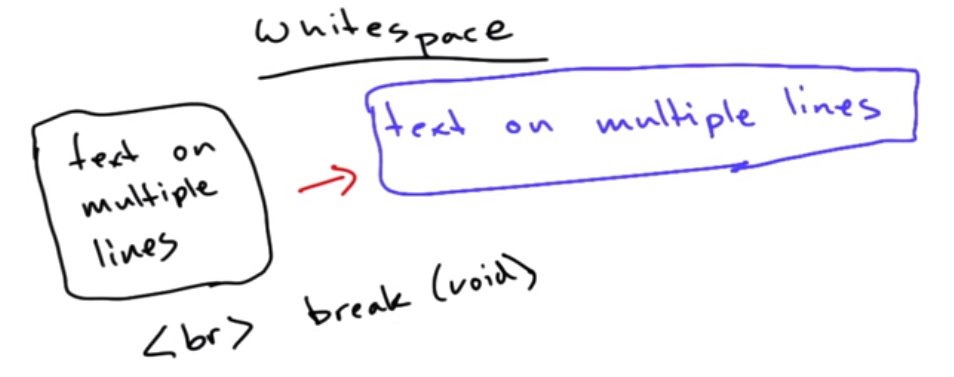 Whitespace
text on multiple lines
text on
multiple
lines
<br> break (void)